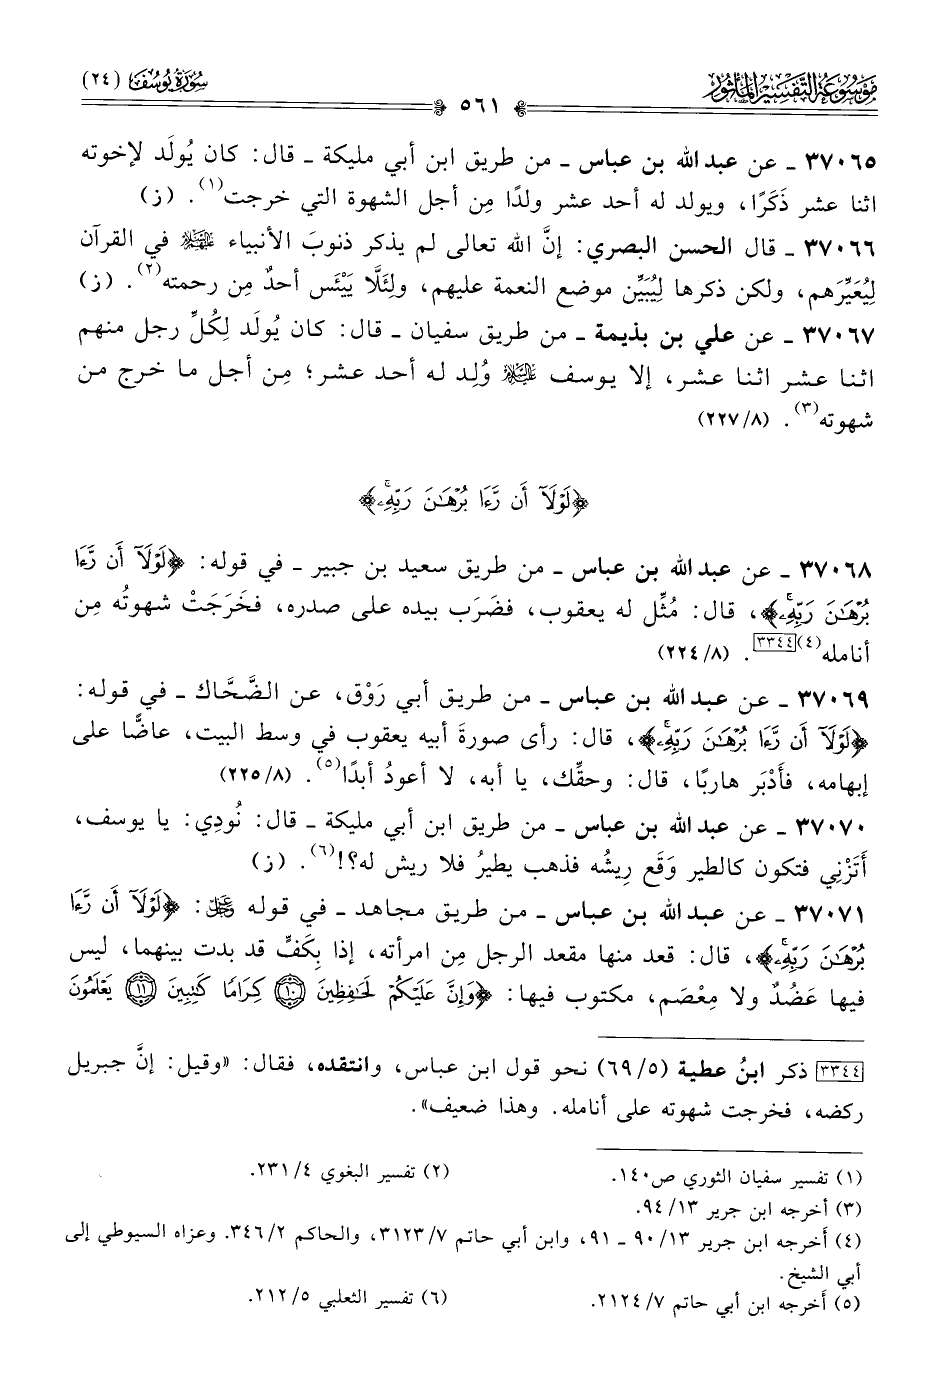 موسوعة التفسير المأثور
سورة يوسف (٢٤)
٥٦١
٣٧٠٦٥ ـ عن عبد الله بن عباس ـ من طريق ابن أبي مليكة ـ قال: كان يُولَد لإخوته
اثنا عشر ذَكَرًا، ويولد له أحد عشر ولدًا مِن أجل الشهوة التي خرجت(١). (ز)
٣٧٠٦٦ ـ قال الحسن البصري: إنَّ الله تعالى لم يذكر ذنوبَ الأنبياء عليهم السلام في القرآن
لِيُعَيِّرَهم، ولكن ذكرها لِيُبَيِّن موضع النعمة عليهم، ولِئَلَّا يَيْئَس أحدٌ مِن رحمته(٢). (ز)
٣٧٠٦٧ ـ عن علي بن بذيمة ـ من طريق سفيان ـ قال: كان يُولَد لِكُلِّ رجل منهم
اثنا عشر اثنا عشر، إلا يوسف عليه السلام وُلِد له أحد عشر؛ مِن أجل ما خرج من
شهوته(٣). (٨/٢٢٧)
﴿لَوْلَآ أَن رَّءَا بُرْهَٰنَ رَبِّهِۦۚ﴾
٣٧٠٦٨ ـ عن عبد الله بن عباس ـ من طريق سعيد بن جبير ـ في قوله: ﴿لَوْلَآ أَن رَّءَا
بُرْهَٰنَ رَبِّهِۦۚ﴾، قال: مُثِّل له يعقوب، فضَرَب بيده على صدره، فخَرَجَتْ شهوتُه مِن
أنامله(٤)[٣٣٤٤]. (٨/٢٢٤)
٣٧٠٦٩ ـ عن عبد الله بن عباس ـ من طريق أبي رَوْق، عن الضَّحَّاك ـ في قوله:
﴿لَوْلَآ أَن رَّءَا بُرْهَٰنَ رَبِّهِۦۚ﴾، قال: رأى صورةَ أبيه يعقوب في وسط البيت، عاضًّا على
إبهامه، فأَدْبَر هاربًا، قال: وحقِّك، يا أبه، لا أعودُ أبدًا(٥). (٨/٢٢٥)
٣٧٠٧٠ ـ عن عبد الله بن عباس ـ من طريق ابن أبي مليكة ـ قال: نُودِي: يا يوسف،
أَتَزْنِي فتكون كالطير وَقَع رِيشُه فذهب يطيرُ فلا ريش له؟!(٦). (ز)
٣٧٠٧١ ـ عن عبد الله بن عباس ـ من طريق مجاهد ـ في قوله عز وجل: ﴿لَوْلَآ أَن رَّءَا
بُرْهَٰنَ رَبِّهِۦۚ﴾، قال: قعد منها مقعد الرجل مِن امرأته، إذا بِكَفٍّ قد بدت بينهما، ليس
فيها عَضُدٌ ولا مِعْصَم، مكتوب فيها: ﴿وَإِنَّ عَلَيْكُمْ لَحَٰفِظِينَ ١٠ كِرَامًا كَٰتِبِينَ ١١ يَعْلَمُونَ
[٣٣٤٤] ذكر ابنُ عطية (٥/٦٩) نحو قول ابن عباس، وانتقده، فقال: «وقيل: إنَّ جبريل
ركضه، فخرجت شهوته على أنامله. وهذا ضعيف».
(١) تفسير سفيان الثوري ص١٤٠.
(٢) تفسير البغوي ٤/٢٣١.
(٣) أخرجه ابن جرير ١٣/٩٤.
(٤) أخرجه ابن جرير ١٣/٩٠ ـ ٩١، وابن أبي حاتم ٧/٣١٢٣، والحاكم ٢/٣٤٦. وعزاه السيوطي إلى
أبي الشيخ.
(٥) أخرجه ابن أبي حاتم ٧/٢١٢٤.
(٦) تفسير الثعلبي ٥/٢١٢.